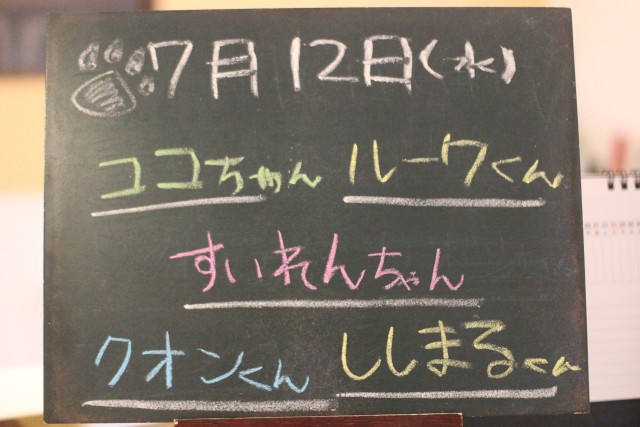 7月12日(水)
ココちゃん ルークくん
すいれんちゃん
クオンくん ししまるくん